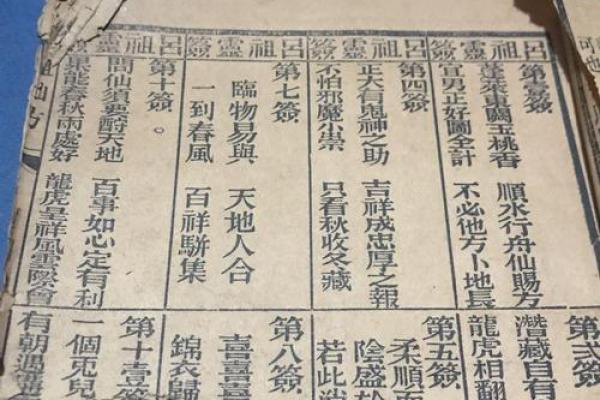 呂祖靈簽
呂祖靈簽
呂祖靈簽
呂祖靈簽
第壹簽
蓬萊東闕玉桃香 順水行舟仙賜方
宜男正好圖全計 不必他方卜地長
第四簽
正大有鬼神之助 吉祥成忠厚之報
不怕邪魔小祟 只看秋收冬藏
第七簽
臨物易與 天地人合
一到春風 百祥駢集
第十簽。
問仙須要酧天地 百事如心定有利
果能春秋兩處好 龍虎呈祥風雲際會
第弍簽
潛藏自有
龍虎相翻
第五簽
柔順而
陰盛於
若此
第八簽
喜喜喜
錦衣歸
第十壹簽
一個兎兒
有朝遇